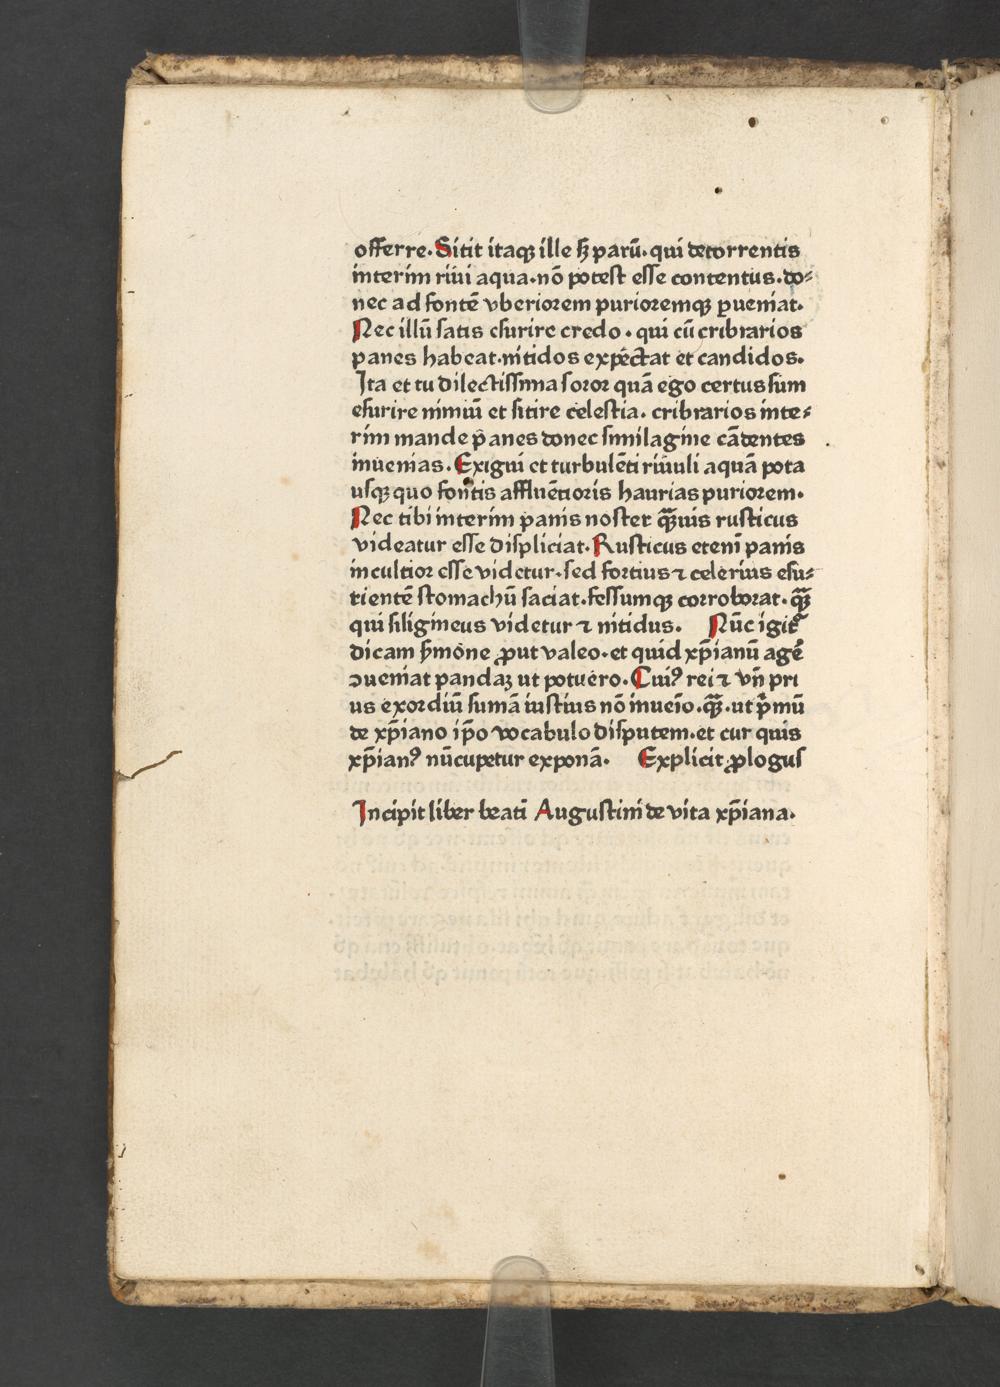 offerre. Sitit itaqꝫ ille sꝫ parū. qui decorrentis
interim riui aqua. nō potest esse contentus. do⸗
nec ad fontē vberiorem purioremqꝫ ꝑueniat.
Nec illū satis esurire credo. qui cū cribrarios
panes habeat. nitidos expectat et candidos.
Ita et tu dilectissima soror quā ego certus sum
esurire nimiū et sitire celestia. cribrarios inte⸗
rim mande panes donec similagine cādentes
inuenias. Exigui et turbulēti riuuli aquā pota
usqꝫ quo fontis affluētioris haurias puriorem.
Nec tibi interim panis noster qᷓꝫuis rusticus
videatur esse displiciat. Rusticus etenī panis
incultior esse videtur. sed fortius ⁊ celerius esu⸗
rientē stomachū saciat. fessumqꝫ corroborat. qᷓꝫ
qui siligineus videtur ⁊ nitidus. Nūc igit᷑
dicam s̄mone ꝓut valeo. et quid xp̄ianū agē
ꝯueniat pandaꝫ ut potuero. Cuiꝰ rei ⁊ vn̄ pri
us exordiū sumā iustius nō inueio. qᷓꝫ. ut p̄mū
de xp̄iano ip̄o vocabulo disputem. et cur quis
xp̄ianꝰ nūcupetur exponā. Explicit ꝓlogus
Incipit liber beati Augustini de vita xp̄iana.